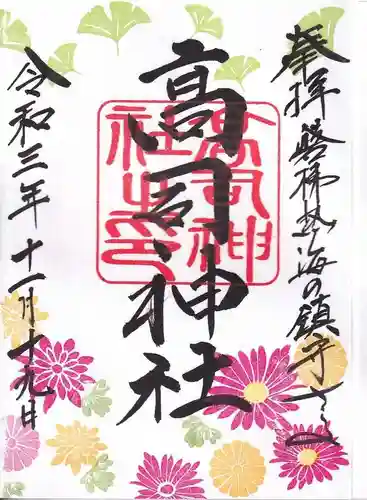 奉拝 磐梯熱海の鎮守さま
高司神社
高司神
社之印
令和三年十一月十九日